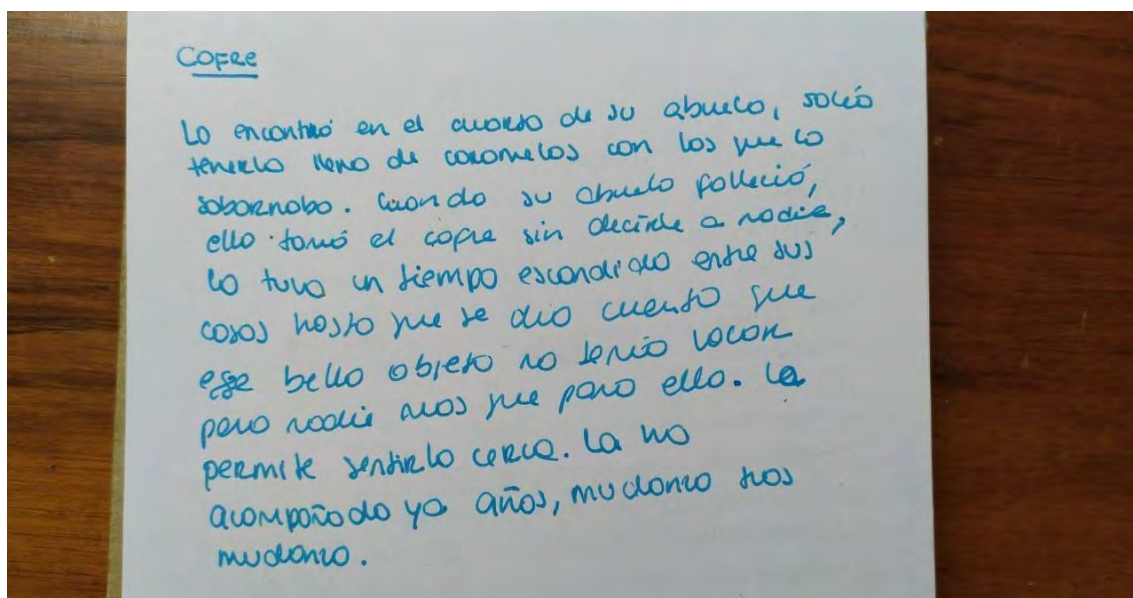 Cofre
Lo encontró en el cuarto de su abuelo, solía
tenerlo lleno de caramelos con los que la
sobornaba. Cuando su abuelo falleció,
ella tomó el cofre sin decirle a nadie,
lo tuvo un tiempo escondido entre sus
cosas hasta que se dio cuenta que
ese bello objeto no tenía valor
para nadie mas que para ella. Le
permite sentirlo cerca. La ha
acompañado ya años, mudanza tras
mudanza.